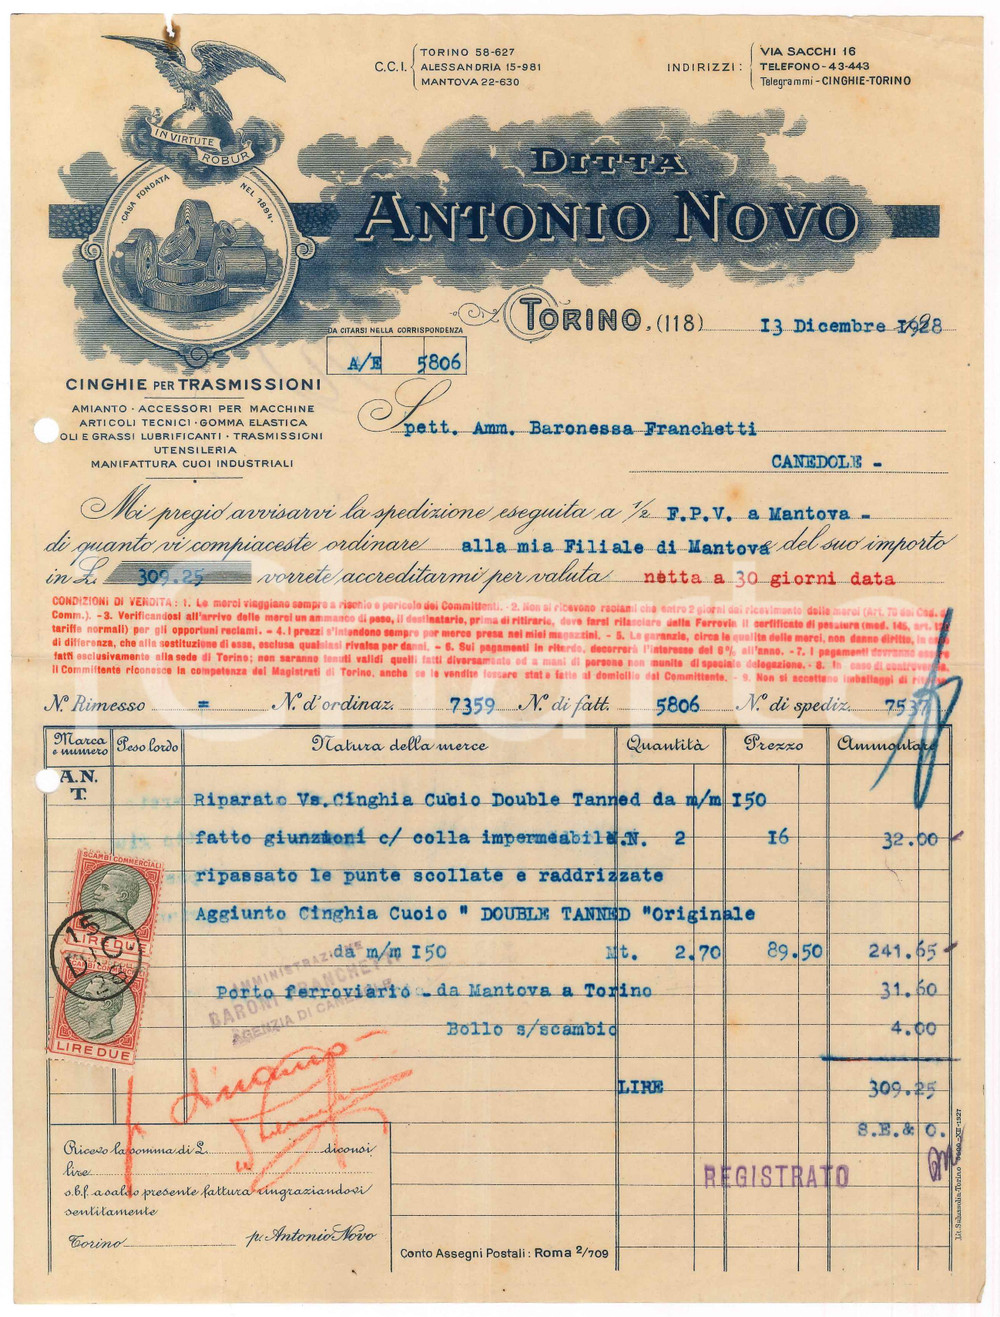 C.C.I. TORINO 58-627
ALESSANDRIA 15-981
MANTOVA 22-630
INDIRIZZI: VIA SACCHI 16
TELEFONO - 43-443
Telegrammi - CINGHIE-TORINO
IN VIRTUTE
ROBUR
CASA FONDATA NEL 1894.
DITTA
ANTONIO NOVO
TORINO, (118) 13 Dicembre 1928
DA CITARSI NELLA CORRISPONDENZA
A/E 5806
CINGHIE PER TRASMISSIONI
AMIANTO - ACCESSORI PER MACCHINE
ARTICOLI TECNICI - GOMMA ELASTICA
OLI E GRASSI LUBRIFICANTI - TRASMISSIONI
UTENSILERIA
MANIFATTURA CUOI INDUSTRIALI
Spett. Amm. Baronessa Franchetti
CANEDOLE -
Mi pregio avvisarvi la spedizione eseguita a ½ F.P.V. a Mantova -
di quanto vi compiaceste ordinare alla mia Filiale di Mantova e del suo importo
in £. 309.25 vorrete accreditarmi per valuta netta a 30 giorni data
CONDIZIONI DI VENDITA: 1. Le merci viaggiano sempre a rischio e pericolo dei Committenti. - 2. Non si ricevono reclami che entro 2 giorni dal ricevimento delle merci (Art. 70 del Cod. di
Comm.). - 3. Verificandosi all'arrivo delle merci un ammanco di peso, il destinatario, prima di ritirarle, deve farsi rilasciare dalla Ferrovia il certificato di pesatura (mod. 145, art.
tariffe normali) per gli opportuni reclami. - 4. I prezzi s'intendono sempre per merce presa nei miei magazzini. - 5. Le garanzie, circa le qualità delle merci, non danno diritto, in caso
di differenza, che alla sostituzione di esse, esclusa qualsiasi rivalsa per danni. - 6. Sui pagamenti in ritardo, decorrerà l'interesse del 8%, all'anno. - 7. I pagamenti dovranno essere
fatti esclusivamente alla sede di Torino; non saranno tenuti validi quelli fatti diversamente ed a mani di persone non munite di speciale delegazione. - 8. In caso di controversie,
il Committente riconosce la competenza dei Magistrati di Torino, anche se le vendite fossero state fatte al domicilio del Committente. - 9. Non si accettano imballaggi di
N.° Rimesso = N.° d'ordinaz. 7359 N.° di fatt. 5806 N.° di spediz. 7537
Marca e numero Peso lordo Natura della merce Quantità Prezzo Ammontare
A.N.
T.
Riparato Vs.Cinghia Cuoio Double Tanned da m/m I50
fatto giunzioni c/ colla impermeabile N.N. 2 16 32.00
ripassato le punte scollate e raddrizzate
Aggiunto Cinghia Cuoio " DOUBLE TANNED "Originale
da m/m I50 Mt. 2.70 89.50 241.65
Porto ferroviario - da Mantova a Torino 31.60
Bollo s/scambio 4.00
LIRE 309.25
S.E.& O.
SCAMBI COMMERCIALI
LIRE DUE
SCAMBI COMMERCIALI
LIRE DUE
15 DIC 28
AMMINISTRAZIONE
BARONI FRANCHETTI
AGENZIA DI CANEDOLE
REGISTRATO
Ricevo la somma di £. diconsi
lire
s.b.f. a saldo presente fattura ringraziandovi
sentitamente
Torino p. Antonio Novo
Conto Assegni Postali: Roma 2/709
Lit. Salussolia-Torino 5000-XII-1927
Charta